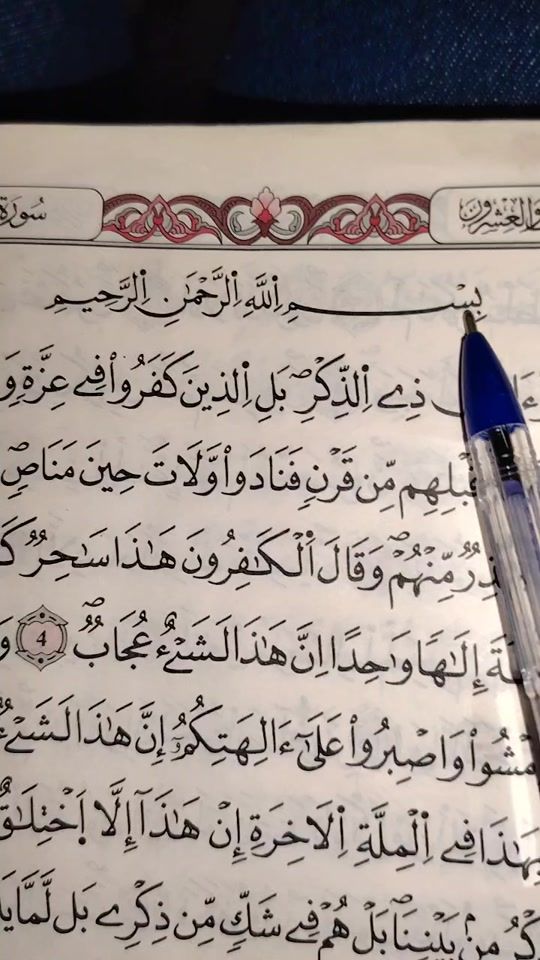 والعشرون سورة
بِسْمِ اِ۬للَّهِ اِ۬لرَّحْمَٰنِ اِ۬لرَّحِيمِ
ذِے اِ۬لذِّكْرِۖ بَلِ اِ۬لذِينَ كَفَرُواْ فِے عِزَّةٖ وَ
قَبْلِهِم مِّن قَرْنٖ فَنَادَواْ وَّلَاتَ حِينَ مَنَاصٖۖ
مِّنْهُمْۖ وَقَالَ اَ۬لْكَٰفِرُونَ هَٰذَا سَٰحِرٞ
إِلَٰهاٗ وَٰحِداً اِنَّ هَٰذَا لَشَےْءٌ عُجَابٞۖ 4
وَاصْبِرُواْ عَلَىٰٓ ءَالِهَتِكُمُۥٓ إِنَّ هَٰذَا لَشَےْءٞ
بِهَٰذَا فِے اِ۬لْمِلَّةِ اِ۬لَاخِرَةِ إِنْ هَٰذَآ إِلَّا اَ۪خْتِلَٰقٌ
مِنۢ بَيْنِنَاۖ بَلْ هُمْ فِے شَكّٖ مِّن ذِكْرِے بَل لَّمَّا